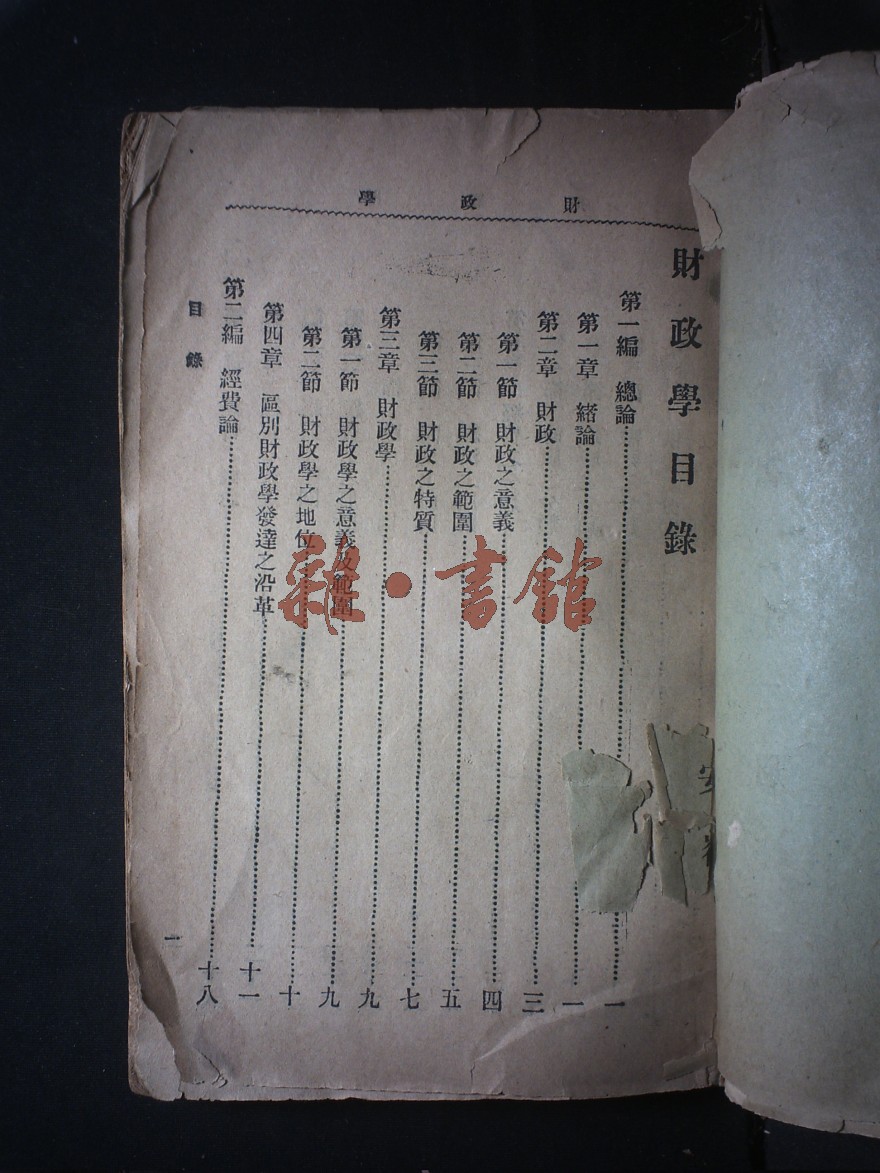 財政學
財政學目錄
第一編 總論……一
第一章 緒論……一
第二章 財政……三
第一節 財政之意義……四
第二節 財政之範圍……五
第三節 財政之特質……七
第三章 財政學……九
第一節 財政學之意義及範圍……九
第二節 財政學之地位……十
第四章 區別財政學發達之沿革……十一
第二編 經費論……十八
目錄
一
雜·書館